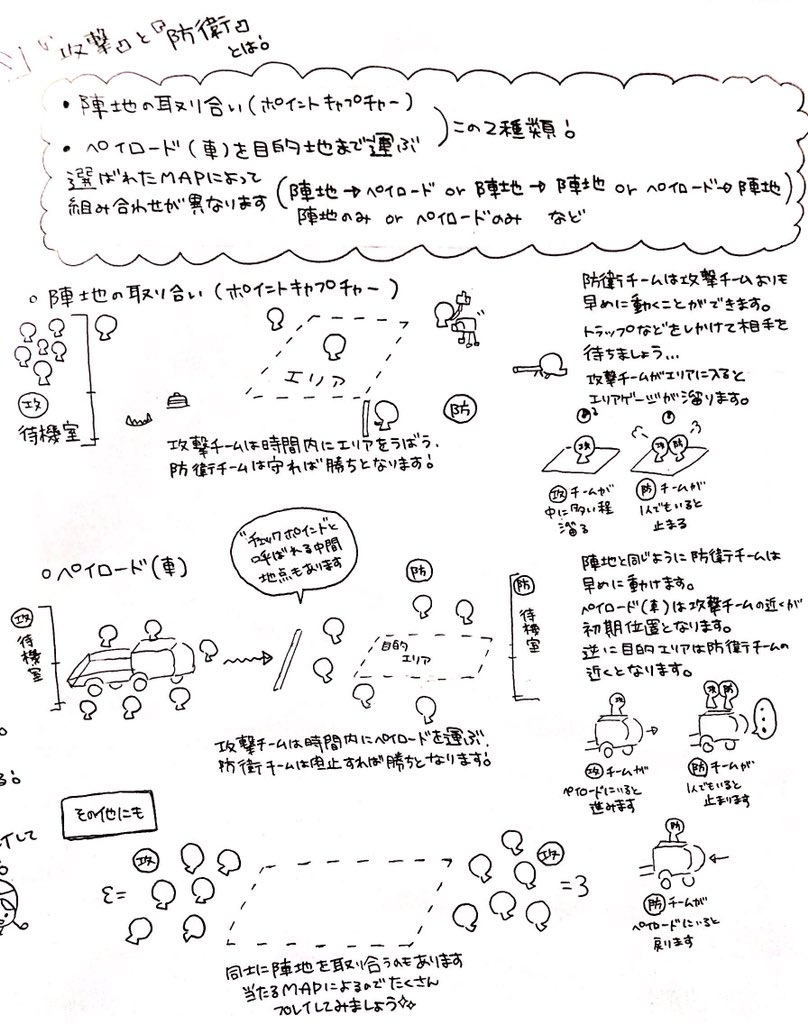 『攻撃』と『防衛』
とは!
・陣地の取り合い(ポイントキャプチャー)
・ペイロード(車)を目的地まで運ぶ
この2種類!
選ばれたMAPによって
組み合わせが異なります
(陣地→ペイロード or 陣地→陣地 or ペイロード→陣地)
陣地のみ or ペイロードのみ など
○陣地の取り合い(ポイントキャプチャー)
攻
待機室
エリア
防
攻撃チームは時間内にエリアをうばう、
防衛チームは守れば勝ちとなります!
防衛チームは攻撃チームよりも
早めに動くことができます。
トラップなどをしかけて相手を
待ちましょう...
攻撃チームがエリアに入ると
エリアゲージが溜ります。
攻
攻チームが
中に多い程
溜る
攻 防
防チームが
1人でもいると
止まる
○ペイロード(車)
"チェックポイント"と
呼ばれる中間
地点もあります
攻
待機室
防
目的
エリア
防
待機室
攻撃チームは時間内にペイロードを運ぶ、
防衛チームは阻止すれば勝ちとなります!
陣地と同じように防衛チームは
早めに動けます。
ペイロード(車)は攻撃チームの近くが
初期位置となります。
逆に目的エリアは防衛チームの
近くとなります。
攻
攻チームが
ペイロードにいると
進みます
攻 防
防チームが
1人でもいると
止まります
防
防チームが
ペイロードにいると
戻ります
その他にも
攻
攻
同士に陣地を取り合うのもあります
当たるMAPによるのでたくさん
プレイしてみましょう